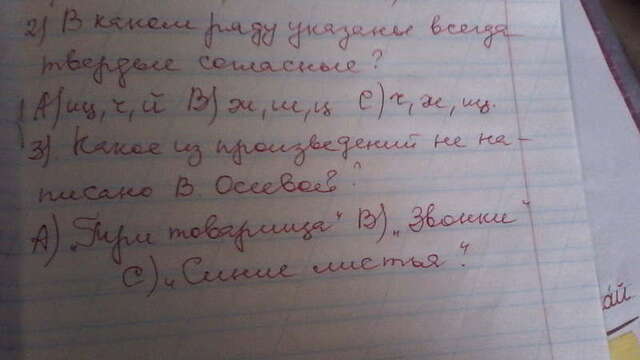 2) В каком ряду указаны всегда
твердые согласные?
А) щ, ч, й В) ж, ш, ц С) ч, ж, щ.
3) Какое из произведений не на-
писано В. Осеевой?
А) „Три товарища“ В) „Звонки“
С) „Синие листья“.
ай